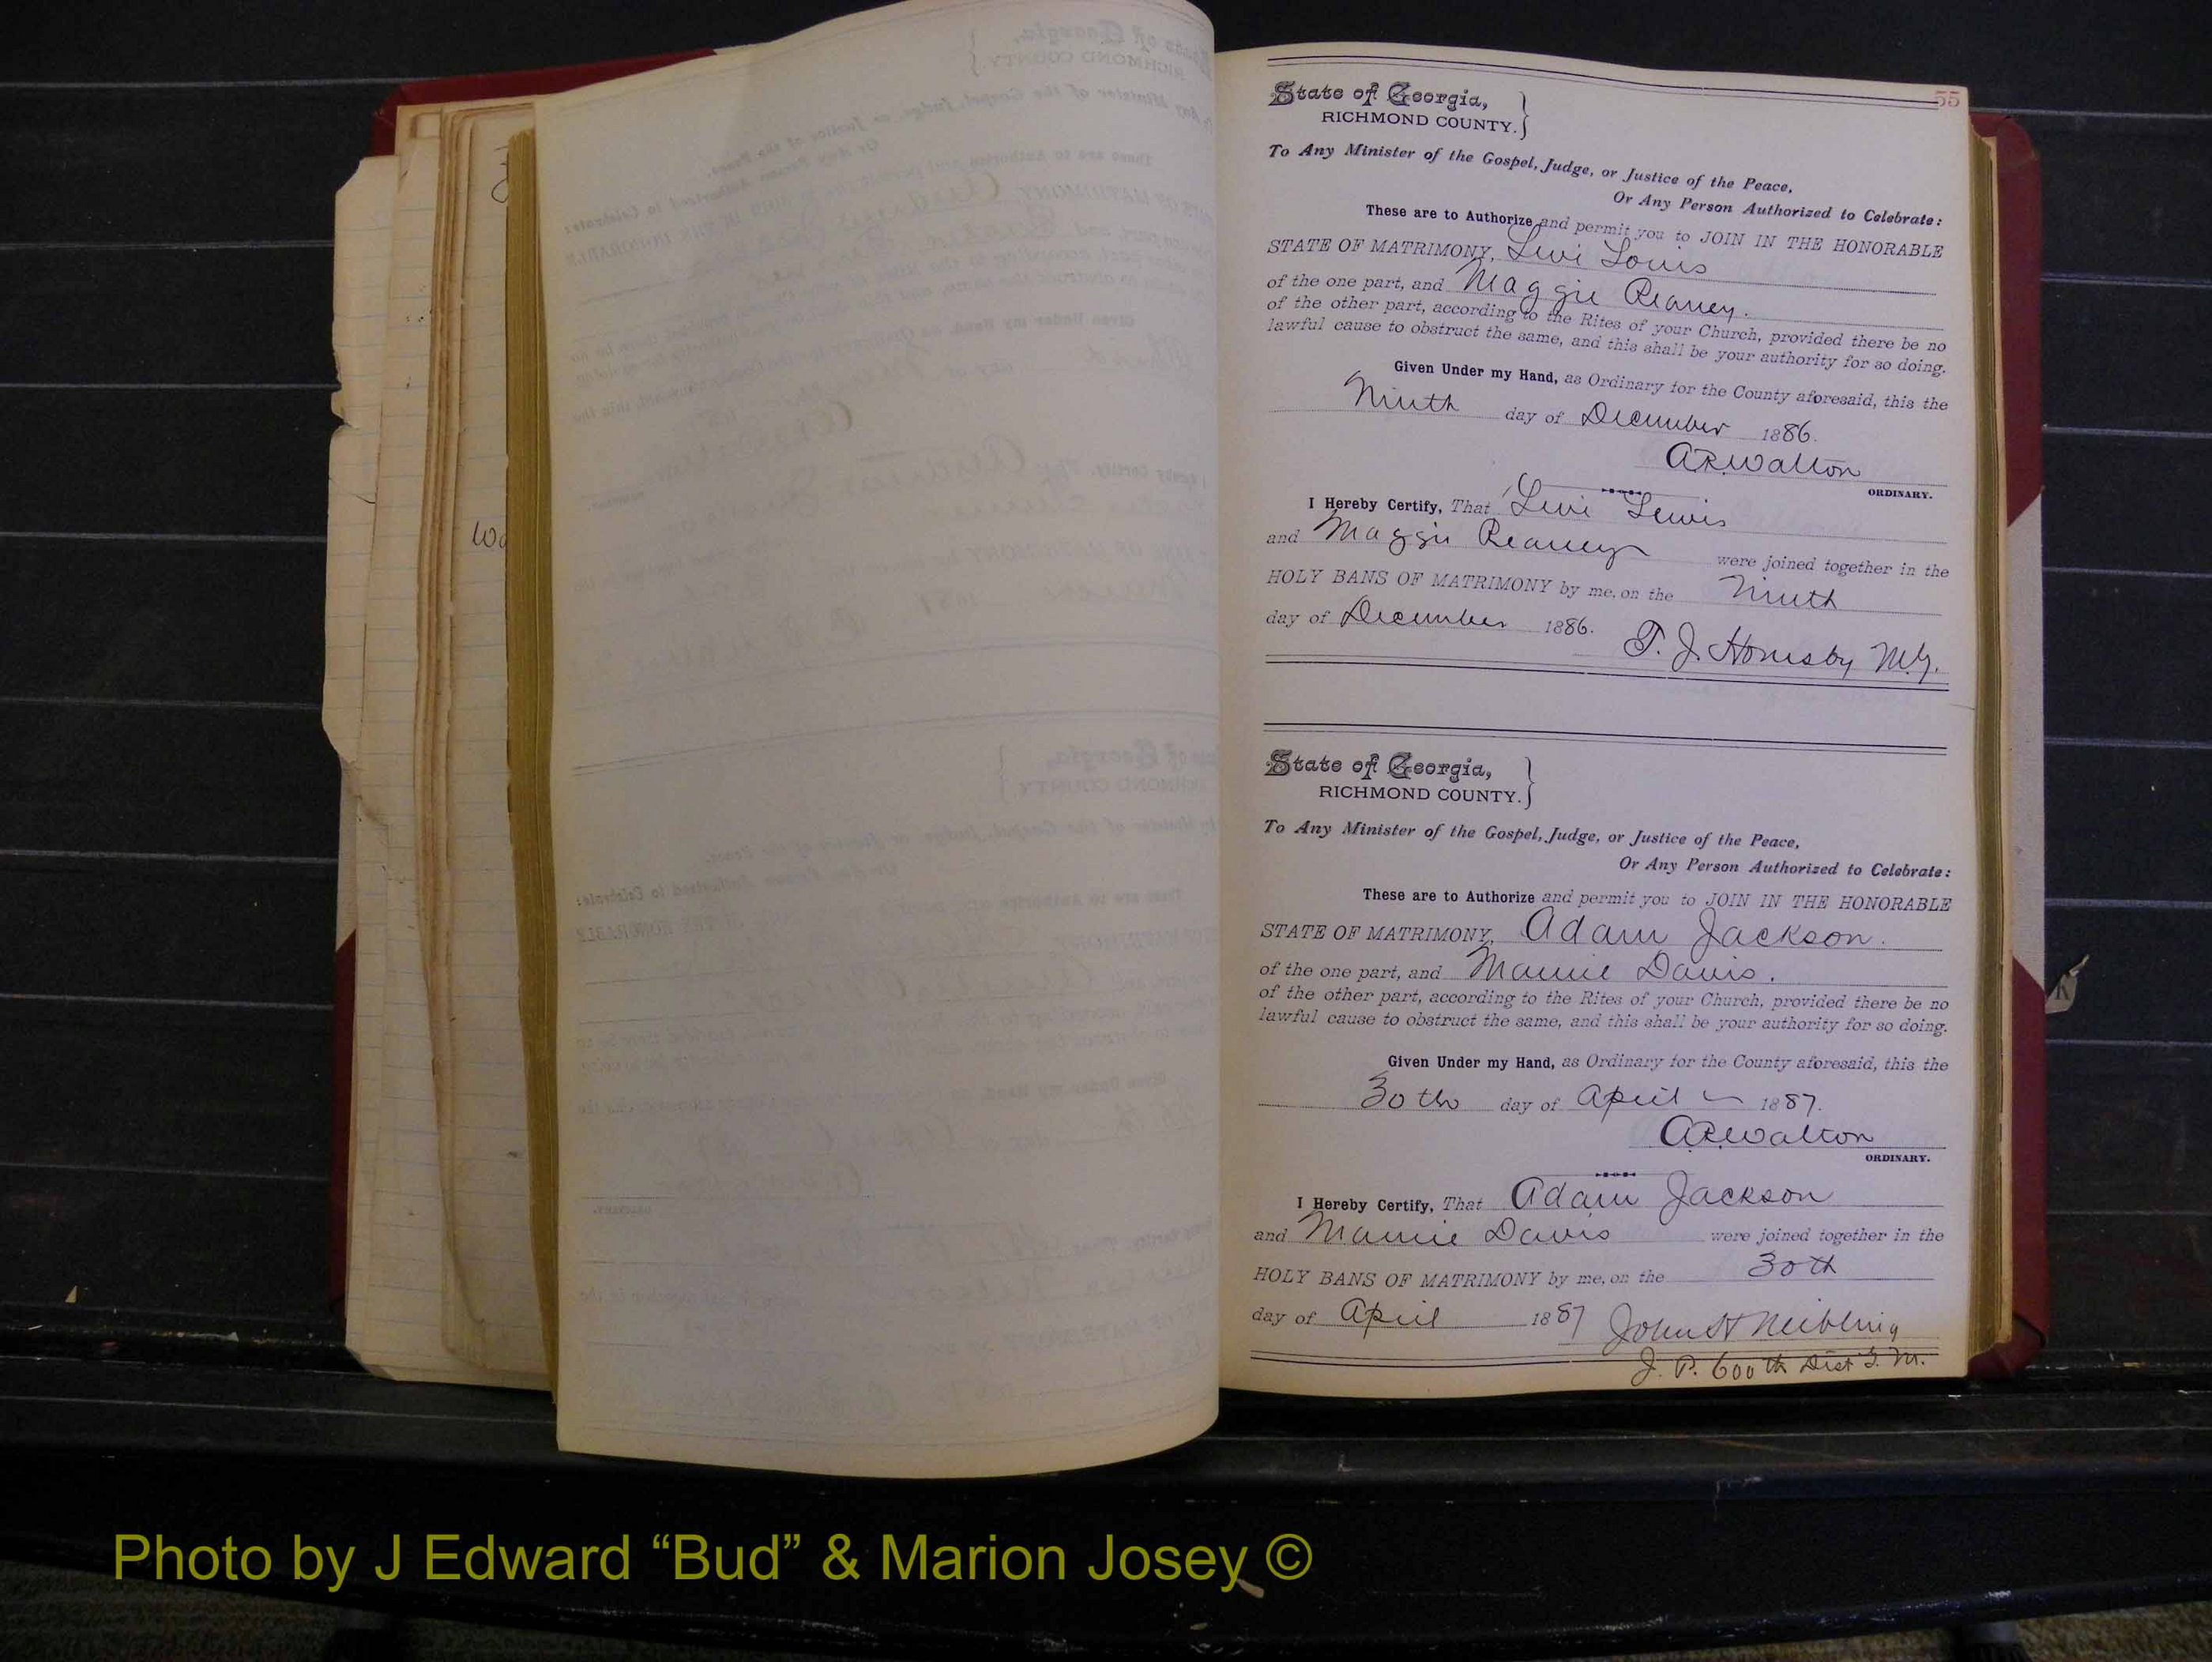 55
State of Georgia,
RICHMOND COUNTY.
To Any Minister of the Gospel, Judge, or Justice of the Peace,
Or Any Person Authorized to Celebrate:
These are to Authorize and permit you to JOIN IN THE HONORABLE
STATE OF MATRIMONY, Levi Louis
of the one part, and Maggie Reaney.
of the other part, according to the Rites of your Church, provided there be no
lawful cause to obstruct the same, and this shall be your authority for so doing.
Given Under my Hand, as Ordinary for the County aforesaid, this the
Ninth day of December 1886.
A.R. Walton
ORDINARY.
I Hereby Certify, That Levi Lewis
and Maggie Reaney were joined together in the
HOLY BANS OF MATRIMONY by me, on the Ninth
day of December 1886.
T. J. Hornsby M.G.
State of Georgia,
RICHMOND COUNTY.
To Any Minister of the Gospel, Judge, or Justice of the Peace,
Or Any Person Authorized to Celebrate:
These are to Authorize and permit you to JOIN IN THE HONORABLE
STATE OF MATRIMONY, Adam Jackson.
of the one part, and Mamie Davis.
of the other part, according to the Rites of your Church, provided there be no
lawful cause to obstruct the same, and this shall be your authority for so doing.
Given Under my Hand, as Ordinary for the County aforesaid, this the
30th day of April 1887.
A.R. Walton
ORDINARY.
I Hereby Certify, That Adam Jackson
and Mamie Davis were joined together in the
HOLY BANS OF MATRIMONY by me, on the 30th
day of April 1887 John H Neibling
J. P. 600th Dist G. M.
Photo by J Edward “Bud” & Marion Josey ©